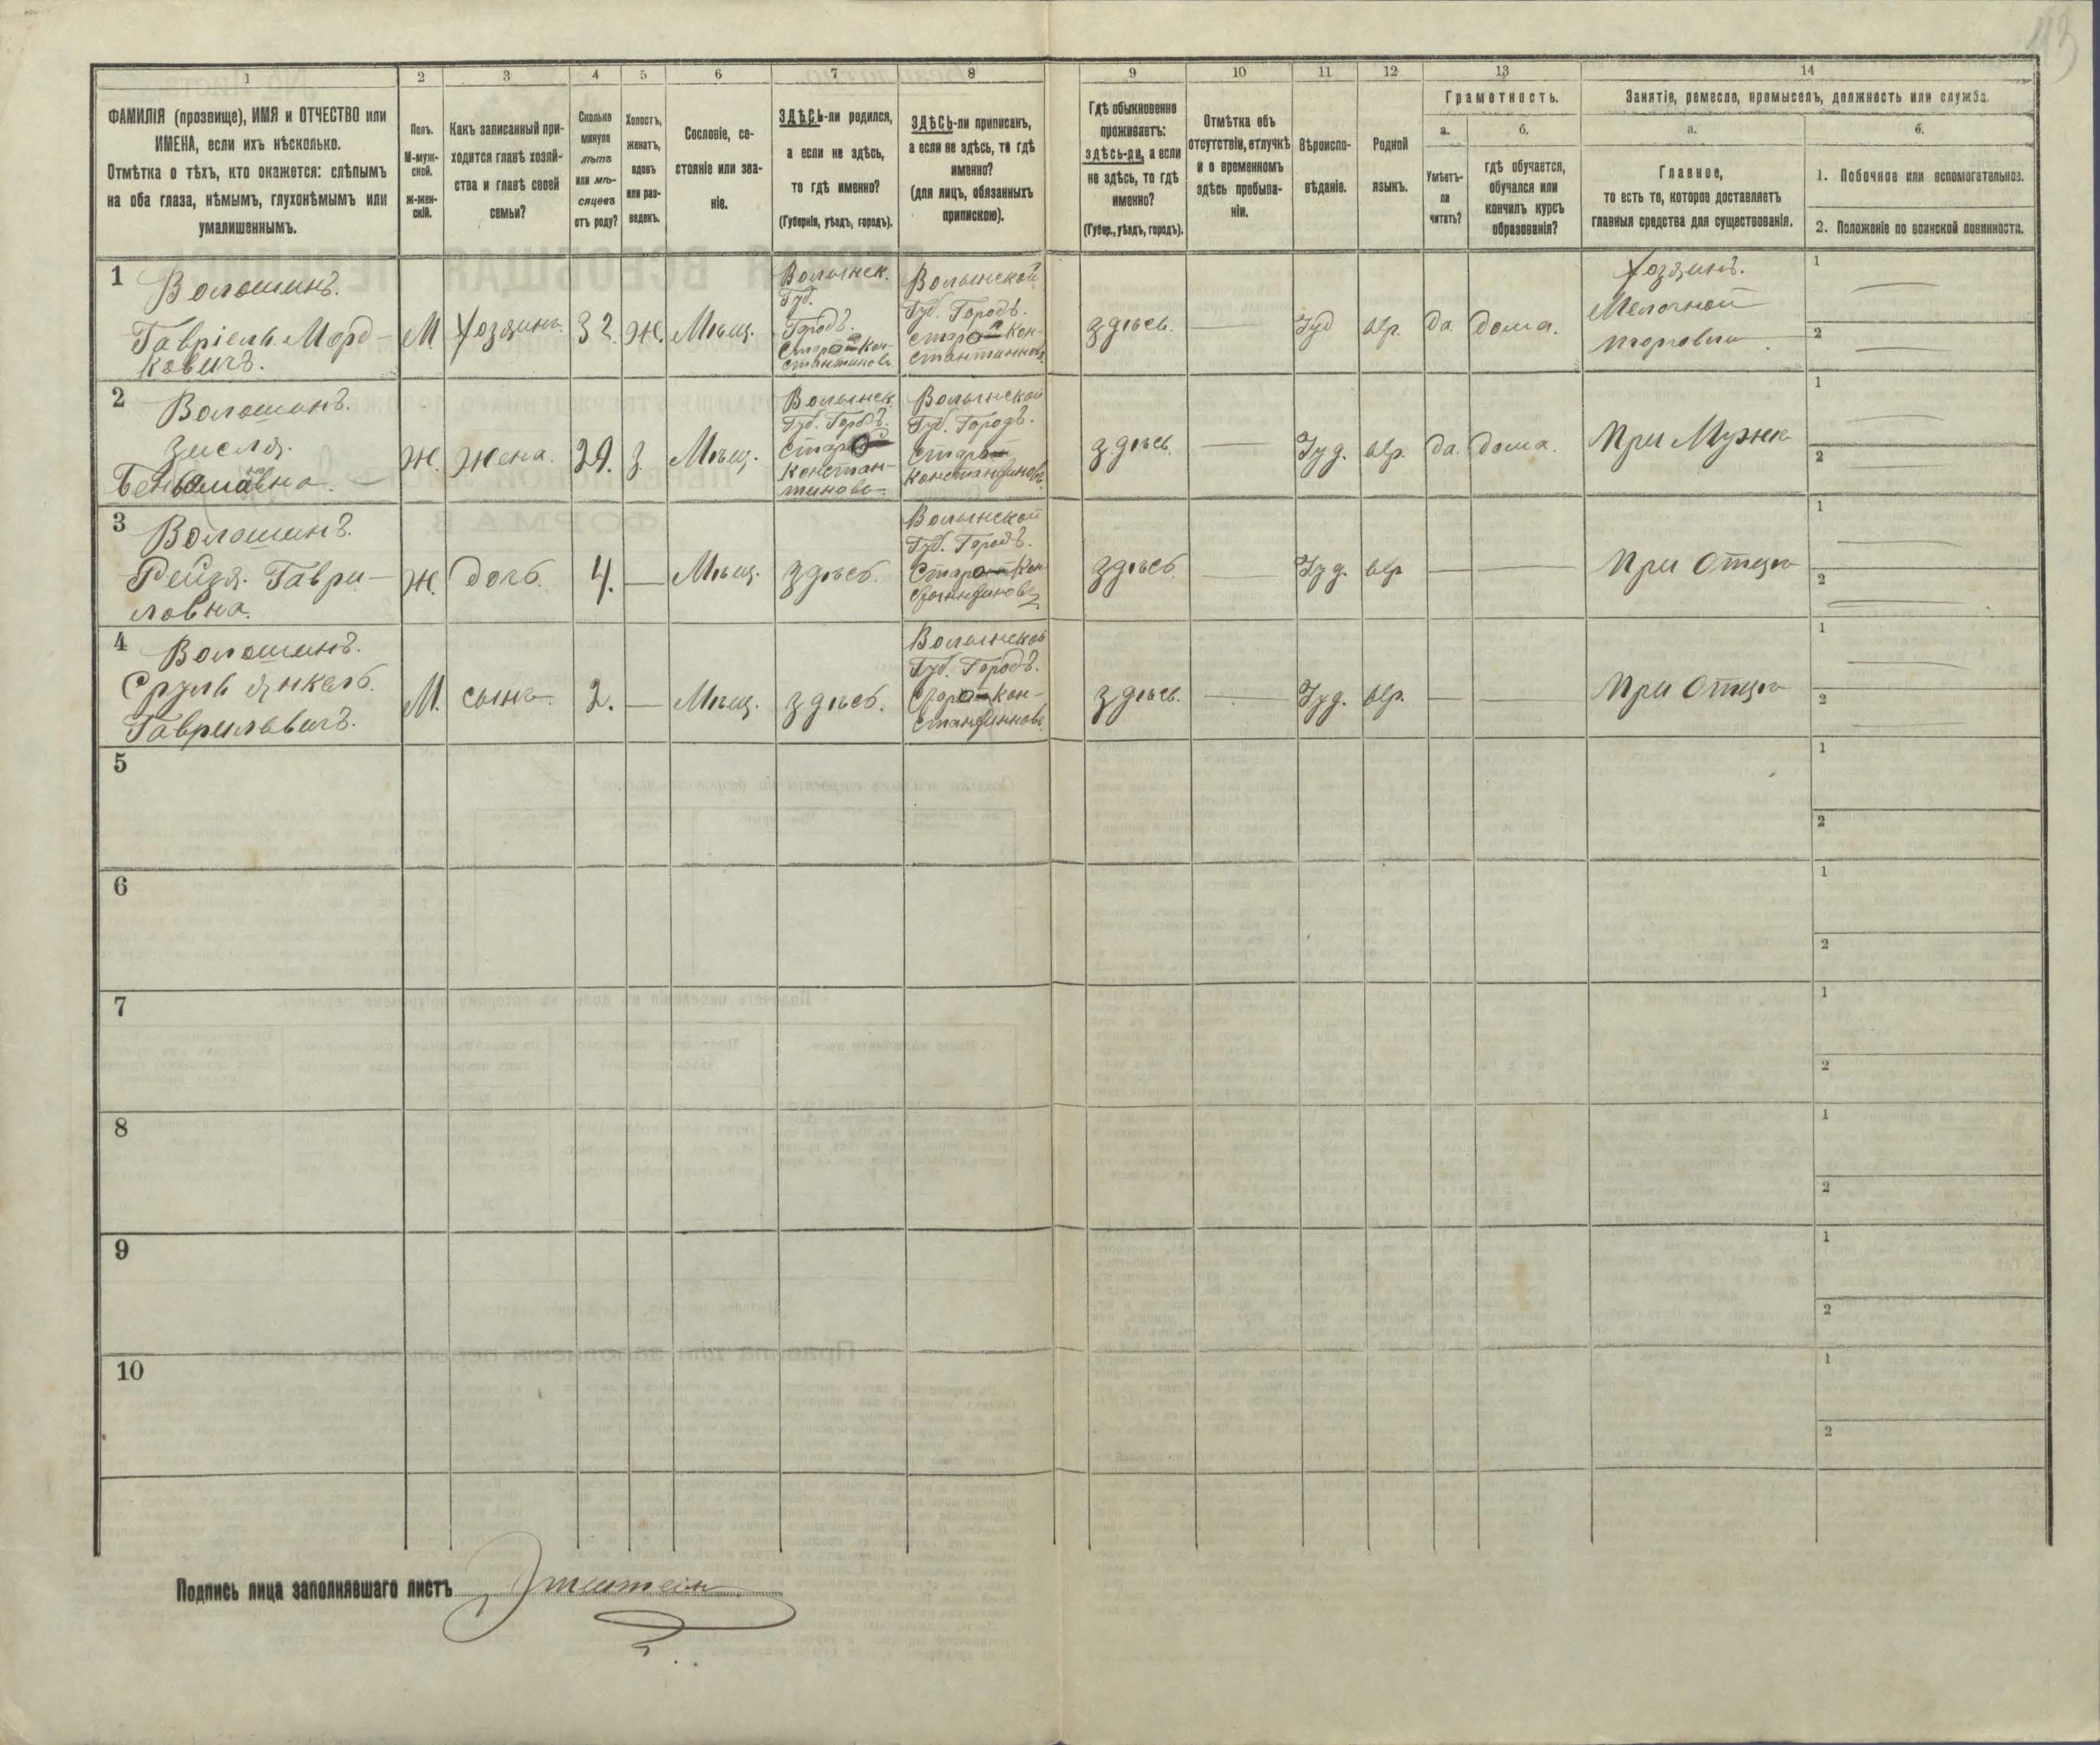 113
1
2
3
4
5
6
7
8
9
10
11
12
13
14
ФАМИЛІЯ (прозвище), ИМЯ и ОТЧЕСТВО или
ИМЕНА, если ихъ нѣсколько.
Отмѣтка о тѣхъ, кто окажется: слѣпымъ
на оба глаза, нѣмымъ, глухонѣмымъ или
умалишеннымъ.
Полъ.
М-муж-
ской.
ж-жен-
скій.
Какъ записанный при-
ходится главѣ хозяй-
ства и главѣ своей
семьи?
Сколько
минуло
лѣтъ
или мѣ-
сяцевъ
отъ роду?
Холостъ,
женатъ,
вдовъ
или раз-
веденъ.
Сословіе, со-
стояніе или зва-
ніе.
ЗДѢСЬ-ли родился,
а если не здѣсь,
то гдѣ именно?
(Губернія, уѣздъ, городъ).
ЗДѢСЬ-ли приписан,
а если не здѣсь, то гдѣ
именно?
(для лицъ, обязанныхъ
припискою).
Гдѣ обыкновенно
проживаетъ:
здѣсь-ли, а если
не здѣсь, то гдѣ
именно?
(Губер., уѣздъ, городъ).
Отмѣтка объ
отсутствіи, отлучкѣ
и о временномъ
здѣсь пребыва-
ніи.
Вѣроиспо-
вѣданіе.
Родной
языкъ.
Грамотность.
а.
б.
Умѣетъ-
ли
читать?
гдѣ обучается,
обучался или
кончилъ курсъ
образованія?
Занятіе, ремесло, промыселъ, должность или служба.
а.
б.
Главное,
то есть то, которое доставляетъ
главныя средства для существованія.
1. Побочное или вспомогательное.
2. Положеніе по воинской повинности.
1
Волошинъ.
Гавріель Морд-
ковичъ.
М.
Хозяинъ.
32.
Ж.
Мѣщ.
Волынск.
Губ.
Городъ.
Старо-Кон-
стантиновъ
Волынской
Губ. Городъ.
Старо-Кон-
стантиновъ
здѣсь.
Іуд
евр.
да.
дома.
Хозяинъ.
Мелочной
торговли
1
2
2
Волошинъ.
Зисля.
Ж.
жена.
29.
З.
Мѣщ.
Волынск.
Губ. Городъ.
Старо
Констан-
тиновъ
Волынской
Губ. Городъ.
Старо
Константиновъ
здѣсь.
Іуд.
евр.
да.
дома.
При Мужѣ
1
2
3
Волошинъ.
Рейзя. Гаври-
ловна.
Ж.
дочь.
4.
Мѣщ.
здѣсь.
Волынской
Губ. Городъ.
Старо-Кон
стантиновъ
здѣсь
Іуд.
евр
При Отцѣ
1
2
4
Волошинъ.
Сруль Янкель.
Гавриловичъ.
М.
сынъ.
2.
Мѣщ.
здѣсь.
Волынской
Губ. Городъ.
Старо-Кон-
стантиновъ
здѣсь.
Іуд.
евр.
При Отцѣ
1
2
5
1
2
6
1
2
7
1
2
8
1
2
9
1
2
10
1
2
Подпись лица заполнявшаго листъ